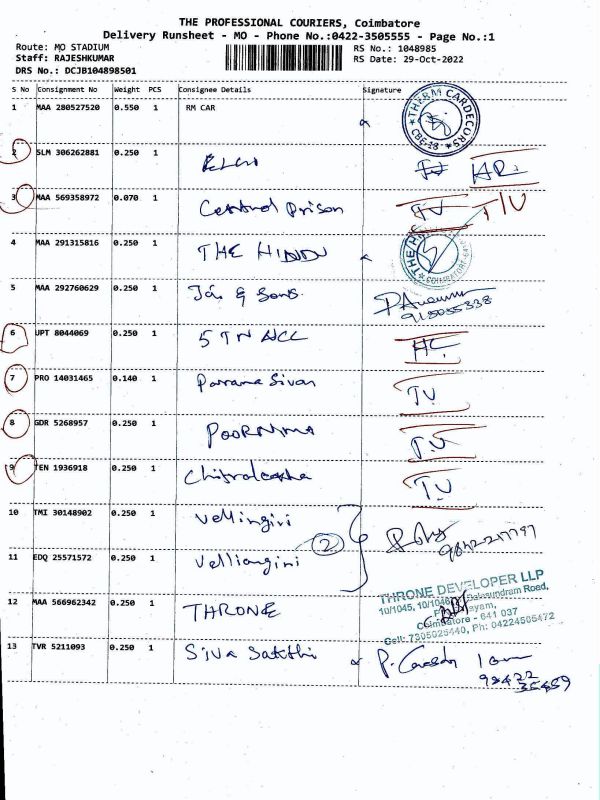 THE PROFESSIONAL COURIERS, Coimbatore
Delivery Runsheet - MO - Phone No.:0422-3505555 - Page No.:1
Route: MO STADIUM RS No.: 1048985
Staff: RAJESHKUMAR RS Date: 29-Oct-2022
DRS No.: DCJB104898501
S No Consignment No Weight PCS Consignee Details Signature
1 MAA 280527520 0.550 1 RM CAR
THERM CARDECORS
CBE-18
2 SLM 306262881 0.250 1
3 MAA 569358972 0.070 1 Central Prison
4 MAA 291315816 0.250 1 THE HINDU
5 MAA 292760629 0.250 1 & Sons.
6 UPT 8044069 0.250 1 5 TN NCC
7 PRO 14031465 0.140 1 Parama Sivan
8 GDR 5268957 0.250 1 POORNIMA
9 TEN 1936918 0.250 1 Chitraleka
10 TMI 30148902 0.250 1 Vellingiri
2
11 EDQ 25571572 0.250 1 Velliangiri
12 MAA 566962342 0.250 1 THRONE
THRONE DEVELOPER LLP
Coimbatore - 641 037
Cell: 7305025440, Ph: 04224505472
13 TVR 5211093 0.250 1 Siva Sakthi